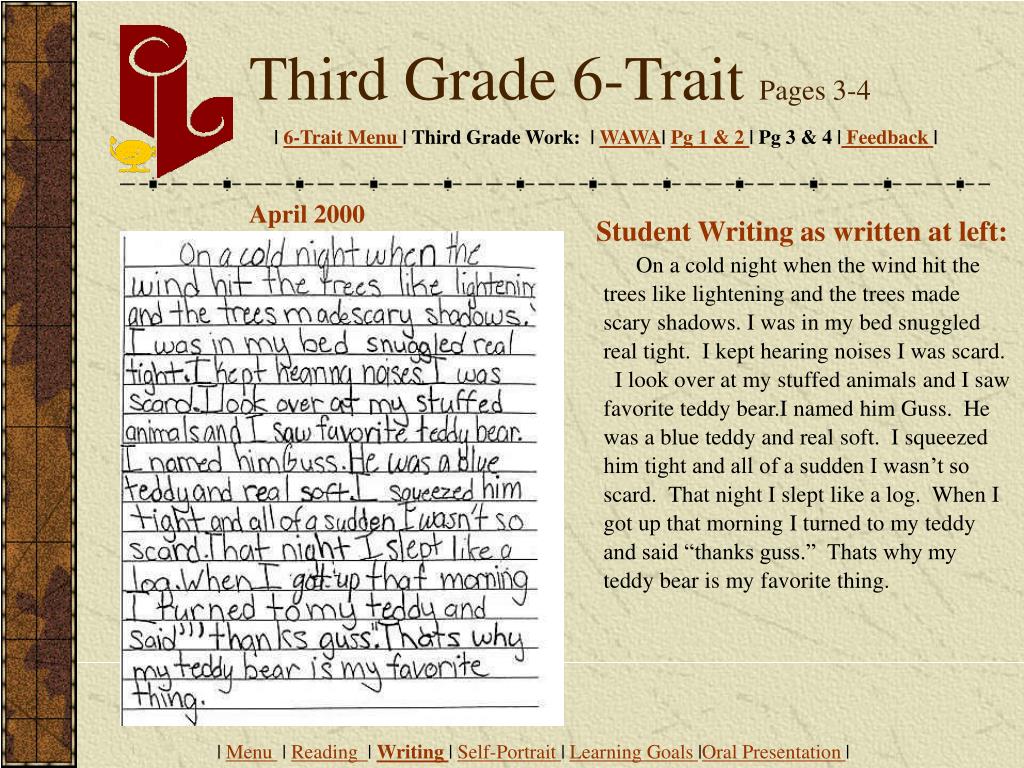 Third Grade 6-Trait Pages 3-4
| 6-Trait Menu | Third Grade Work: | WAWA| Pg 1 & 2 | Pg 3 & 4 | Feedback |
April 2000
On a cold night when the
wind hit the trees like lightenin
and the trees made scary shadows.
I was in my bed snuggled real
tight. I kept hearing noises I was
scard. I look over at my stuffed
animals and I saw favorite teddy bear.
I named him Guss. He was a blue
teddy and real soft. I squeezed him
tight and all of a sudden I wasn't so
scard. That night I slept like a
log. When I got up that morning
I turned to my teddy and
said ''' thanks guss." Thats why
my teddy bear is my favorite
thing.
Student Writing as written at left:
On a cold night when the wind hit the
trees like lightening and the trees made
scary shadows. I was in my bed snuggled
real tight. I kept hearing noises I was scard.
I look over at my stuffed animals and I saw
favorite teddy bear.I named him Guss. He
was a blue teddy and real soft. I squeezed
him tight and all of a sudden I wasn't so
scard. That night I slept like a log. When I
got up that morning I turned to my teddy
and said “thanks guss.” Thats why my
teddy bear is my favorite thing.
| Menu | Reading | Writing | Self-Portrait | Learning Goals |Oral Presentation |